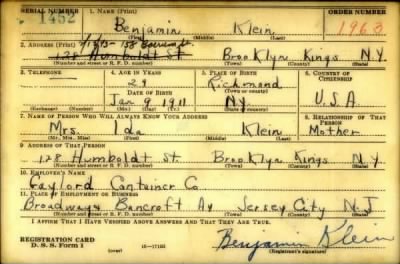 SERIAL NUMBER 1. NAME (Print) ORDER NUMBER
1452 Benjamin Klein 1963
(First) (Middle) (Last)
2. ADDRESS (Print)
128 Humboldt St Brooklyn Kings N.Y.
(Number and street or R. F. D. number) (Town) (County) (State)
3. TELEPHONE 4. AGE IN YEARS 5. PLACE OF BIRTH 6. COUNTRY OF CITIZENSHIP
29 Richmond
DATE OF BIRTH (Town or county)
Jan 9 1911 N.Y. U.S.A
(Exchange) (Number) (Mo.) (Day) (Yr.) (State or country)
7. NAME OF PERSON WHO WILL ALWAYS KNOW YOUR ADDRESS 8. RELATIONSHIP OF THAT PERSON
Mrs. Ida Klein Mother
(Mr., Mrs., Miss) (First) (Middle) (Last)
9. ADDRESS OF THAT PERSON
128 Humboldt St. Brooklyn Kings N.Y
(Number and street or R. F. D. number) (Town) (County) (State)
10. EMPLOYER'S NAME
Gaylord Container Co
11. PLACE OF EMPLOYMENT OR BUSINESS
Broadway & Bancroft Av Jersey City N.J
(Number and street or R. F. D. number) (Town) (County) (State)
I AFFIRM THAT I HAVE VERIFIED ABOVE ANSWERS AND THAT THEY ARE TRUE.
REGISTRATION CARD
D. S. S. Form 1 Benjamin Klein
(Registrant's signature)